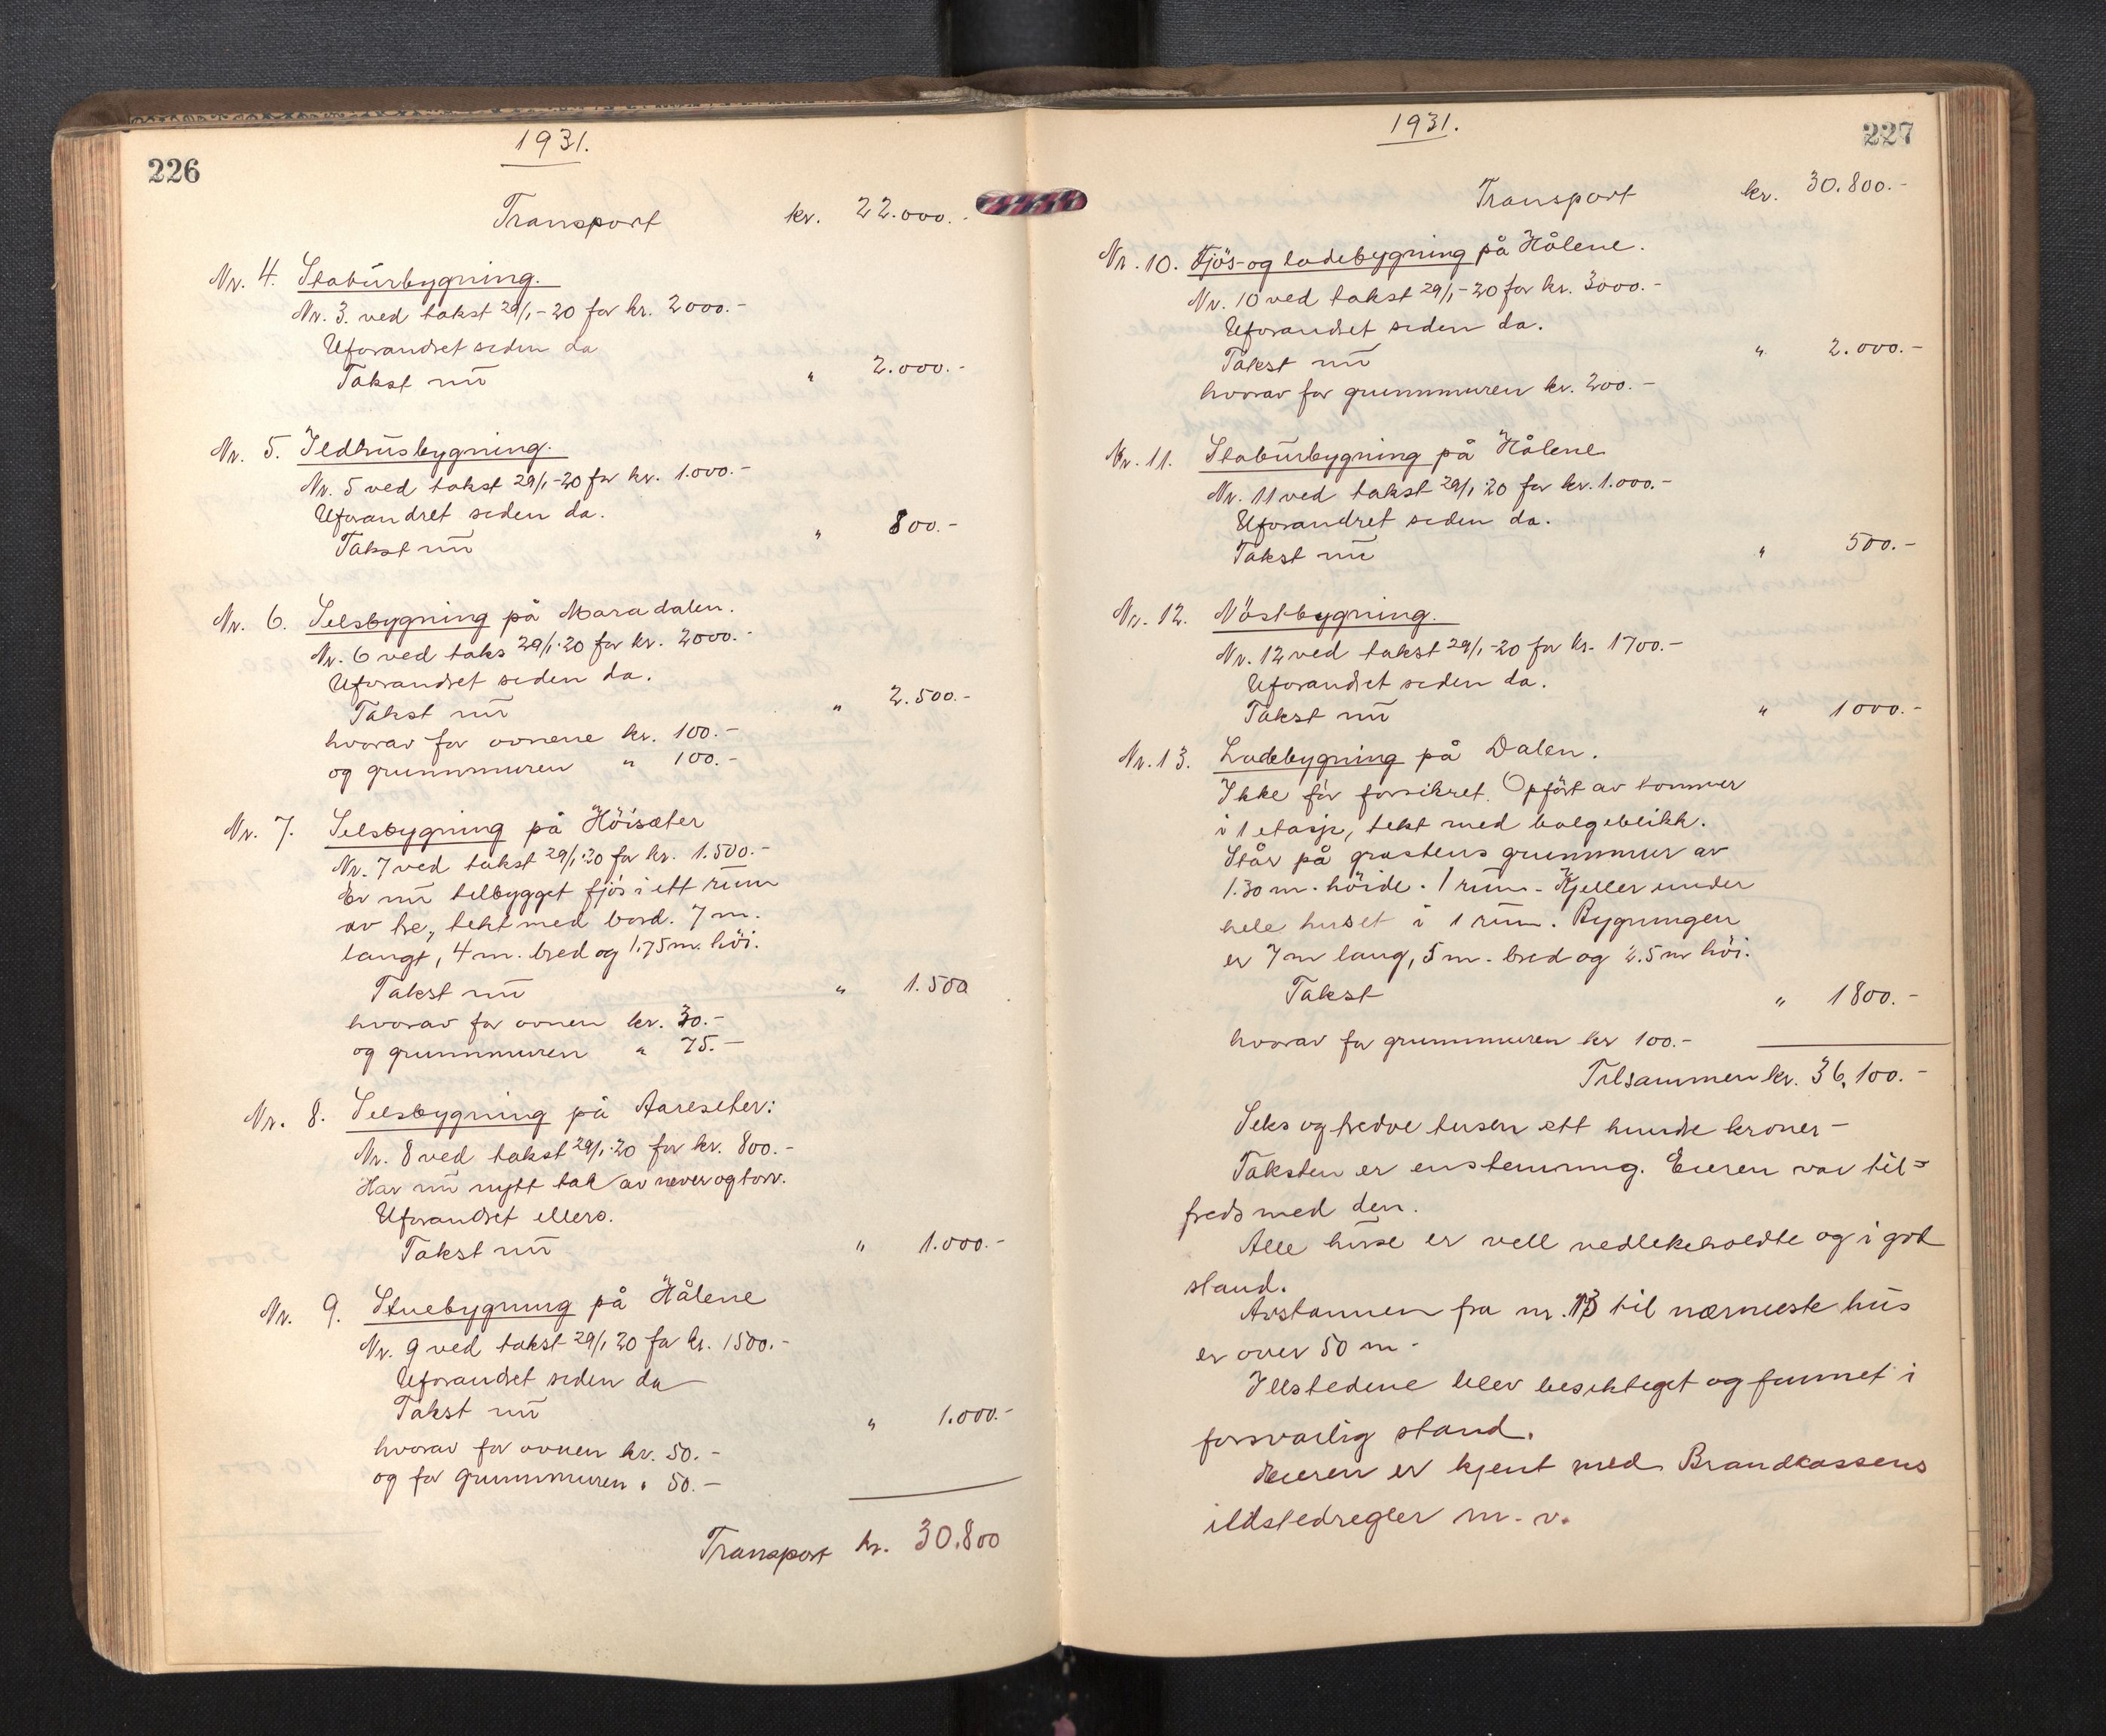 226
1931.
Transport kr. 22.000.-
Nr. 4. Staburbygning.
Nr. 3. ved takst 29/1-20 for kr. 2000.-
Uforandret siden da
Takst nu " 2.000.-
Nr. 5. Ildhusbygning.
Nr. 5 ved takst 29/1-20 for kr. 1.000.-
Uforandret siden da.
Takst nu " 800.-
Nr. 6. Selsbygning på Maradalen.
Nr. 6 ved taks 29/1-20 for kr. 2000.-
Uforandret siden da.
Takst nu " 2.500.-
hvorav for ovnene kr. 100.-
og grunnmuren " 100.-
Nr. 7. Selsbygning på Höisæter
Nr. 7 ved takst 29/1-20 for kr. 1.500.-
Er nu tilbygget fjös i ett rum
av tre, tekt med bord. 7 m.
langt, 4 m. bred og 1.75 m. höi.
Takst nu " 1.500
hvorav for ovnen kr. 30.-
og grunnmuren " 75.-
Nr. 8. Selsbygning på Aareseter:
Nr. 8 ved takst 29/1-20 for kr. 800.-
Har nu nytt tak av never og torv.
Uforandret ellers.
Takst nu " 1.000.-
Nr. 9. Stuebygning på Hålene
Nr. 9 ved takst 29/1 20 for kr. 1500.-
Uforandret siden da
Takst nu " 1.000.-
hvorav for ovnen kr. 50.-
og for grunnmuren " 50.-
Transport kr. 30.800
1931.
227
Transport kr. 30.800.-
Nr. 10. Fjös- og ladebygning på Hålene.
Nr. 10 ved takst 29/1-20 for kr. 3000.-
Uforandret siden da.
Takst nu " 2.000.-
hvorav for grunnmuren kr. 200.-
Nr. 11. Staburbygning på Hålene
Nr. 11 ved takst 29/1-20 for kr. 1.000.-
Uforandret siden da.
Takst nu " 500.-
Nr. 12. Nöstbygning.
Nr. 12 ved takst 29/1-20 for kr. 1700.-
Uforandret siden da.
Takst nu " 1000.-
Nr. 13. Ladebygning på Dalen.
Ikke för forsikret. Opfört av tömmer
i 1 etasje, tekt med bølgeblikk.
Står på gråstens grunnmur av
1.30 m. höide. 1 rum. Kjeller under
hele huset i 1 rum. Bygningen
er 7 m lang, 5 m. bred og 2.5 m höi.
Takst " 1800.-
hvorav for grunnmuren kr 100.-
Tilsammen kr. 36,100.-
Seks og tredve tusen ett hundre kroner -
Taksten er enstemmig. Eieren var til=
freds med den.
Alle huse er vell vedlikeholdte og i god
stand.
Avstannen fra nr. 13 til nærmeste hus
er over 50 m.
Illstedene blev besiktiget og funnet i
forsvarlig stand.
Eieren er kjent med Brandkassens
ildstedregler m. v.